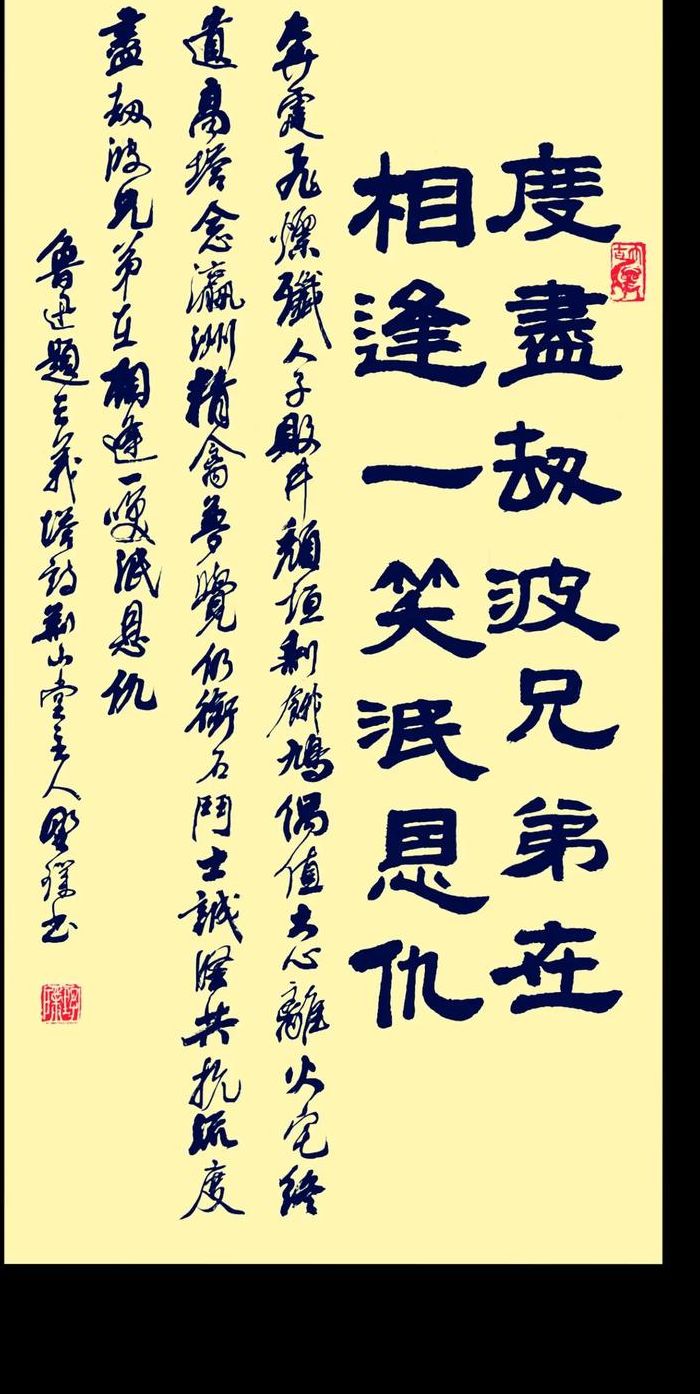 度盡劫波兄弟在
相逢一笑泯恩仇
奔霆飛熛殲人子敗井頹垣剩餓鳩偶值大心離火宅終
遺高塔念瀛洲精禽夢覺仍銜石鬥士誠堅共抗流度
盡劫波兄弟在相逢一笑泯恩仇
魯迅題三義塔詩荆山堂主人書